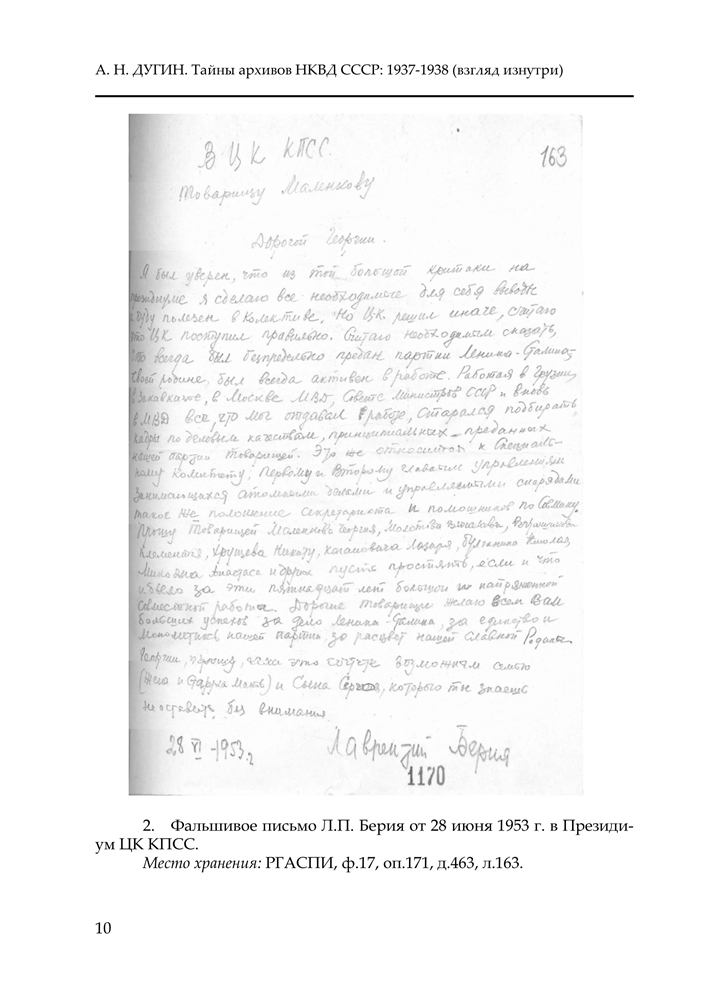 А. Н. ДУГИН. Тайны архивов НКВД СССР: 1937-1938 (взгляд изнутри)
В ЦК КПСС.
163
Товарищу Маленкову
Дорогой Георгий.
Я был уверен, что из той большой критики на
президиуме я сделаю все необходимые для себя выводы
и буду полезен в коллективе. Но ЦК решил иначе, считаю
что ЦК поступил правильно. Считаю необходимым сказать,
что всегда был беспредельно предан партии Ленина-Сталина,
своей родине, был всегда активен в работе. Работая в Грузии,
в Закавказье, в Москве МВД, Совете Министров СССР и вновь
в МВД все, что мог отдавал работе, старался подбирать
кадры по деловым качествам, принципиальных, преданных
нашей партии товарищей. Это же относится к Специаль-
ному Комитету, Первому и Второму главным управлениям
занимающихся атомными делами и управляемыми снарядами
такое же положение Секретариата и помощников по Совмину.
Прошу Товарищей Маленкова Георгия, Молотова Вячеслава, Ворошилова
Клементия, Хрущева Никиту, Кагановича Лазаря, Булганина Николая,
Микояна Анастаса и других пусть простят, если и что
и было за эти пятнадцать лет большой и напряженной
совместной работы. Дорогие товарищи желаю всем Вам
больших успехов за дело Ленина-Сталина, за единство и
монолитность нашей партии, за расцвет нашей Славной Родины.
Георгий, прошу, если это сочтете возможным семью
(жена и старуха мать) и сына Серго, которого ты знаешь
не оставить без внимания
28 VI -1953 г
Лаврентий Берия
1170
2. Фальшивое письмо Л.П. Берия от 28 июня 1953 г. в Президи-
ум ЦК КПСС.
Место хранения: РГАСПИ, ф.17, оп.171, д.463, л.163.
10